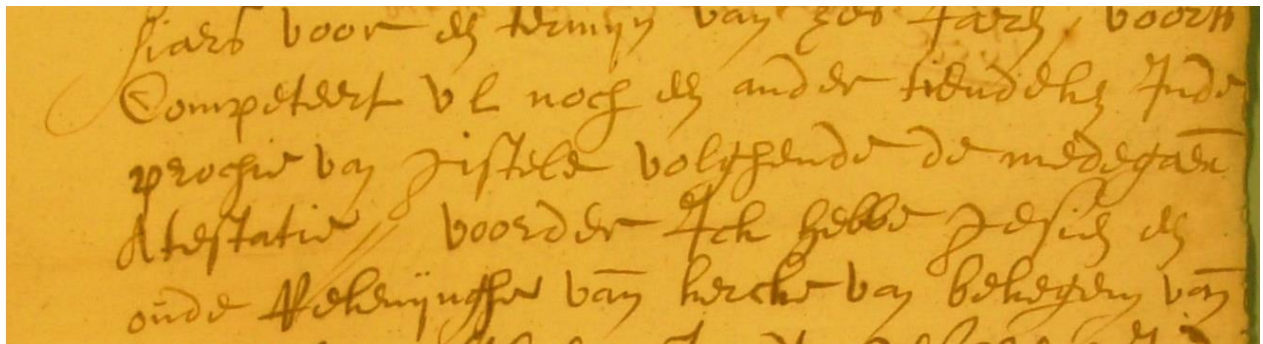 siars voor een termijn van zes Jaren, voorts
Competeert vl noch een ander tiendeken Inde
prochie van Jistele volghende de medegaen
Atestatie // voorder Ick hebbe Jesien een
oude Rekenijnghe van kercke van bekegem van